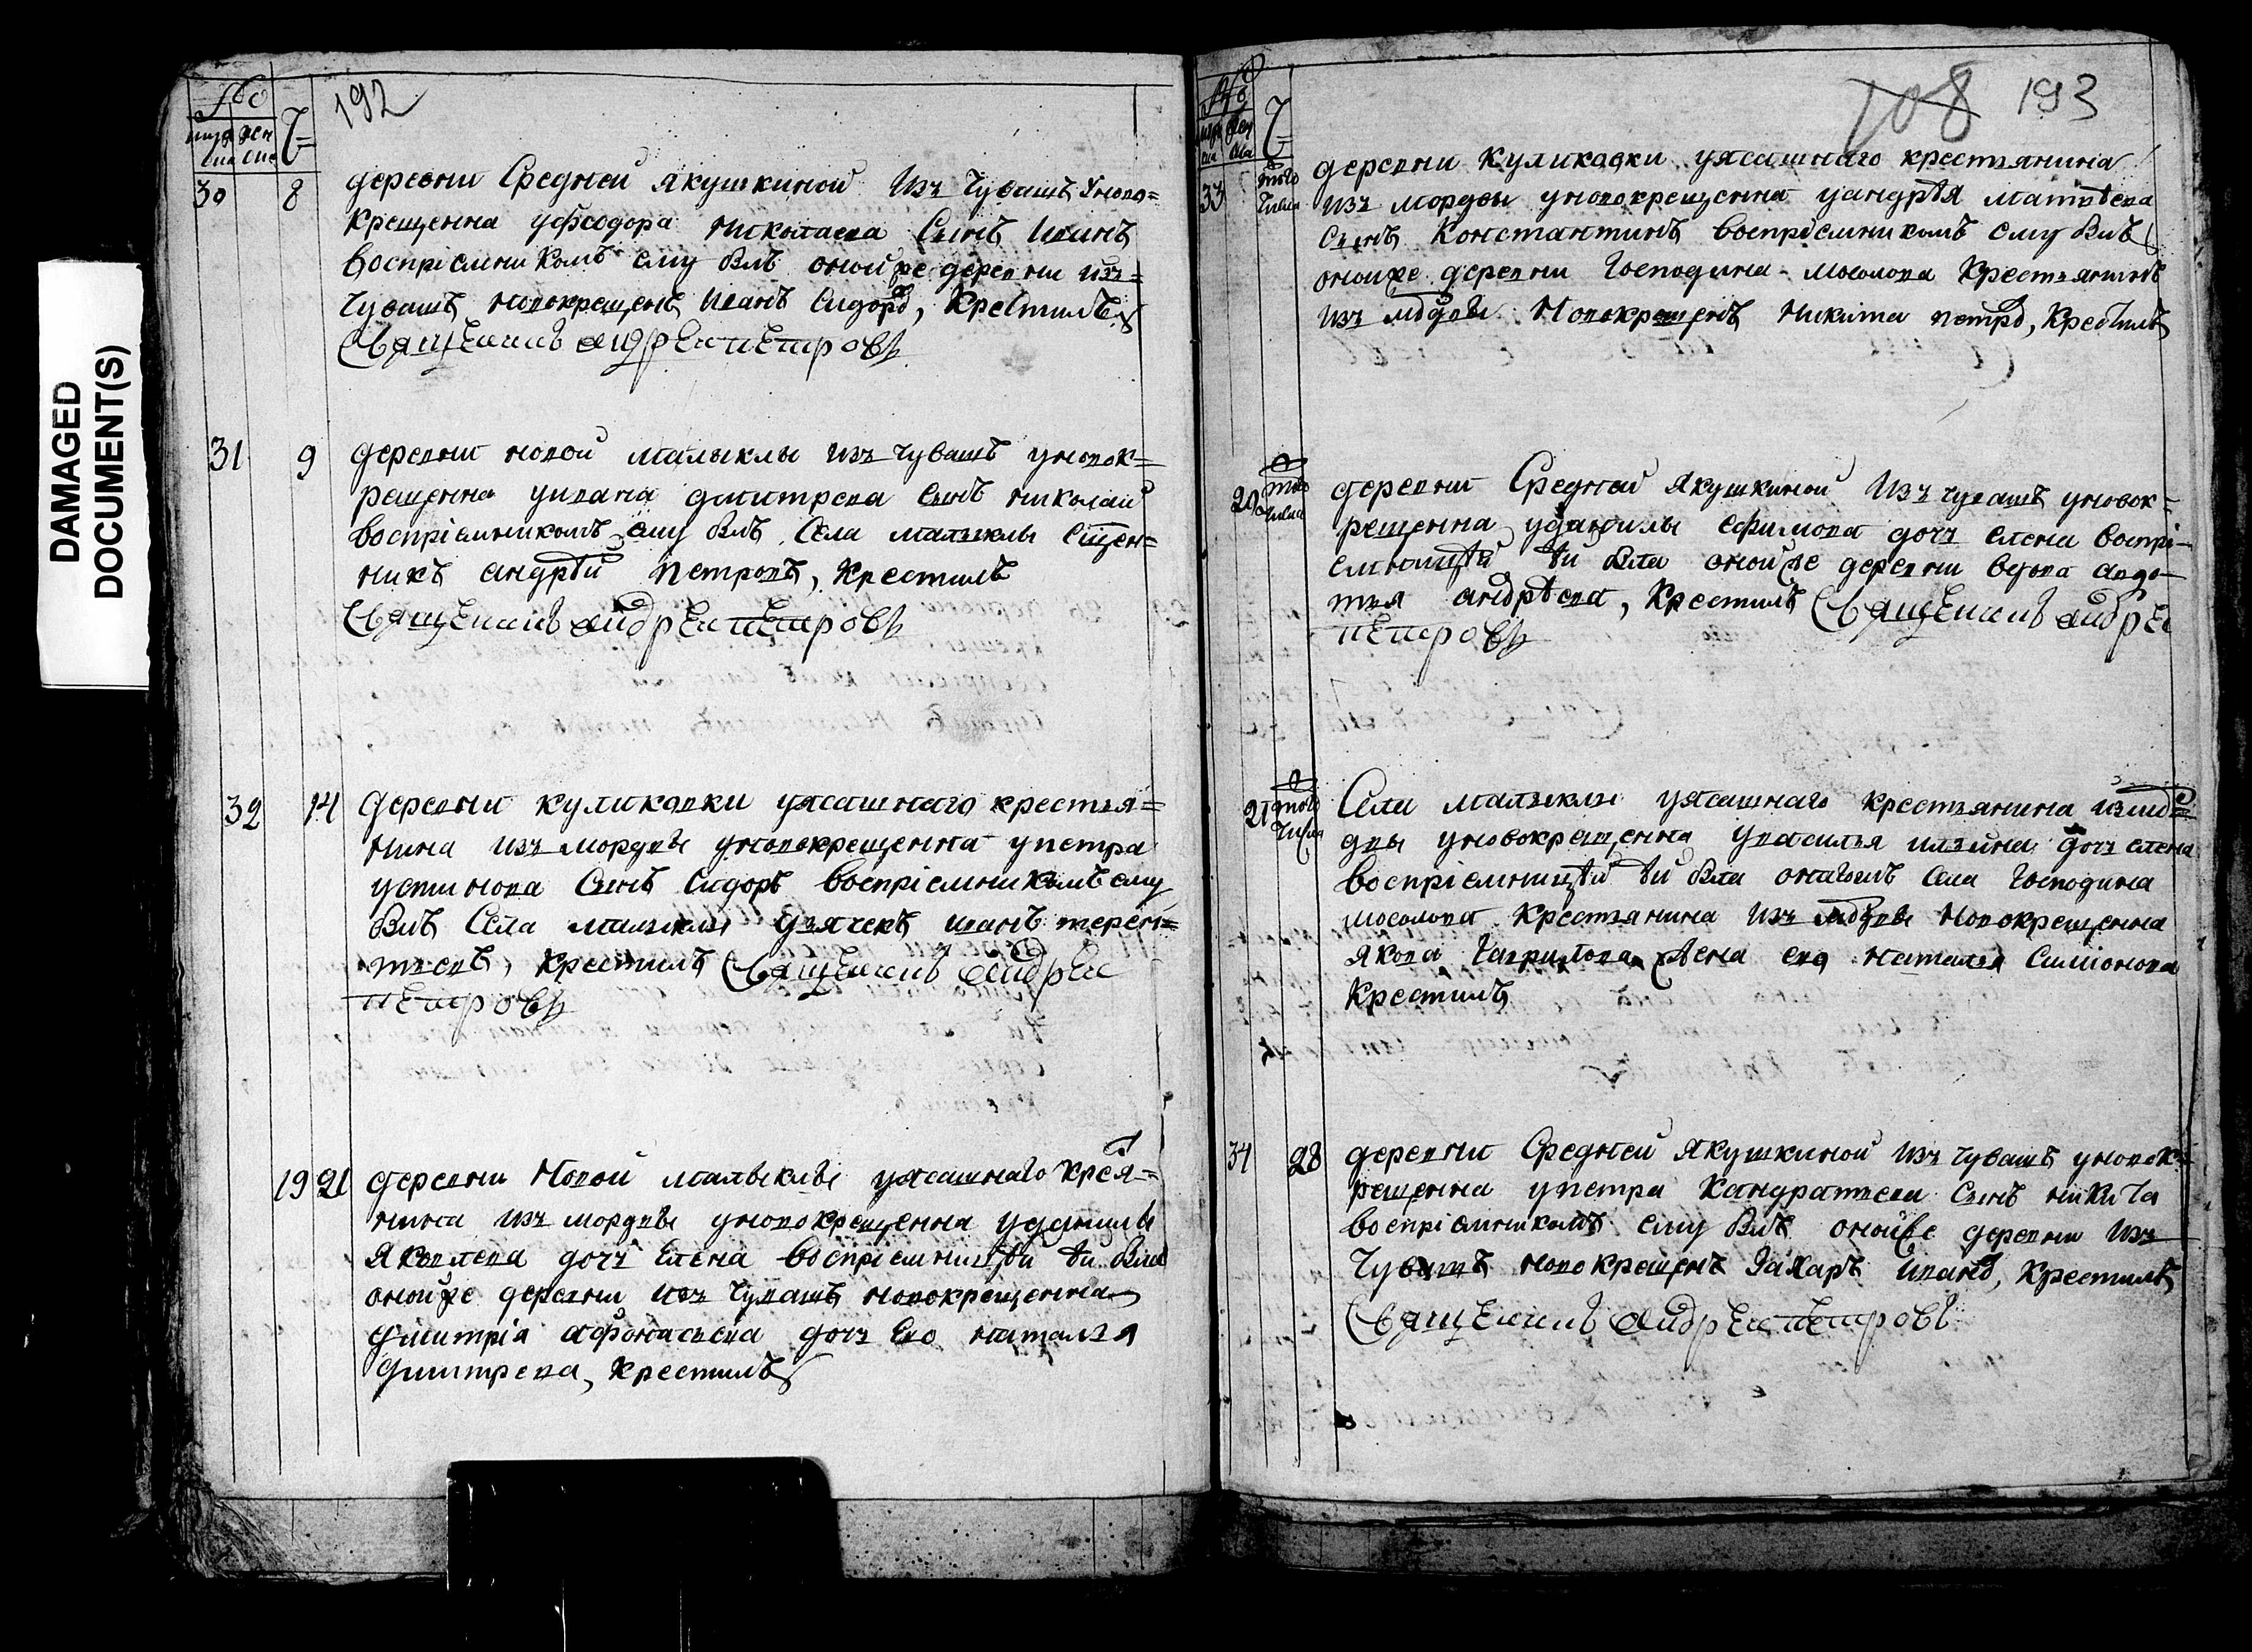 DAMAGED
DOCUMENT(S)
192
муж жен
ска ска Ч
30 8 деревни Средней якушкиной Изъ Чувашъ Уново=
крещенна уфеодора николаева Сынъ Иванъ
воспріемникомъ ему былъ оной же деревни изъ=
Чувашъ новокрещенъ Иванъ Сидоровъ, Крестилъ
Священникъ андреи петровъ
31 9 деревни новой малыклы изъ чувашъ уновок=
рещенна уивана дмитрева сынъ николай
воспріемникомъ ему былъ Села малыклы сщен=
никъ андрѣй петровъ, Крестилъ
Священникъ андреи петровъ
32 14 деревни куликовки уясашнаго крестья=
нина изъ мордвы уновокрещенна упетра
устинова Сынъ Сидоръ воспріемникомъ ему
былъ Села малыклы дьячекъ иванъ терен=
тьевъ, крестилъ Священникъ андреи
петровъ
19 21 деревни Новой малыклы уясашнаго крестья=
нина изъ мордвы уновокрещенна уданилы
яковлева дочь Елена воспріемницѣй ѣй была
оной же деревни изъ Чувашъ новокрещенна
дмитрія афонасьева дочь Ево наталья
дмитрева, Крестилъ
108 193
муж жен
ска ска Ч
33 того числа деревни Куликовки уясашнаго крестьянина
изъ мордвы уновокрещенна уандрѣя матвѣева
сынъ Константинъ воспріемникомъ ему былъ
оной же деревни Господина мосолова Крестьянинъ
изъ мордвы Новокрещенъ Никита петровъ, Крестилъ
20 того числа деревни Средней якушкиной Изъ чувашъ уновок=
рещенна уданилы ефимова дочь елена воспрі-
емницѣй ѣй была оной же деревни вдова авдо-
тья андрѣева, Крестилъ Священникъ андреи
петровъ
21 того числа Села малыклы уясашнаго крестьянина измор=
двы уновокрещенна увасилья ильина дочь елена
воспріемницѣй ѣй была онагожъ села Господина
мосолова крестьянина изъ мордвы Новокрещенна
якова Гаврилова жена ево наталья Симіонова
Крестилъ
34 28 деревни Средней якушкиной изъ чувашъ уновок=
рещенна упетра Кандратьева Сынъ никита
воспріемникомъ ему былъ оной же деревни изъ
Чувашъ новокрещенъ Захаръ Ивановъ, Крестилъ
Священникъ андреи петровъ